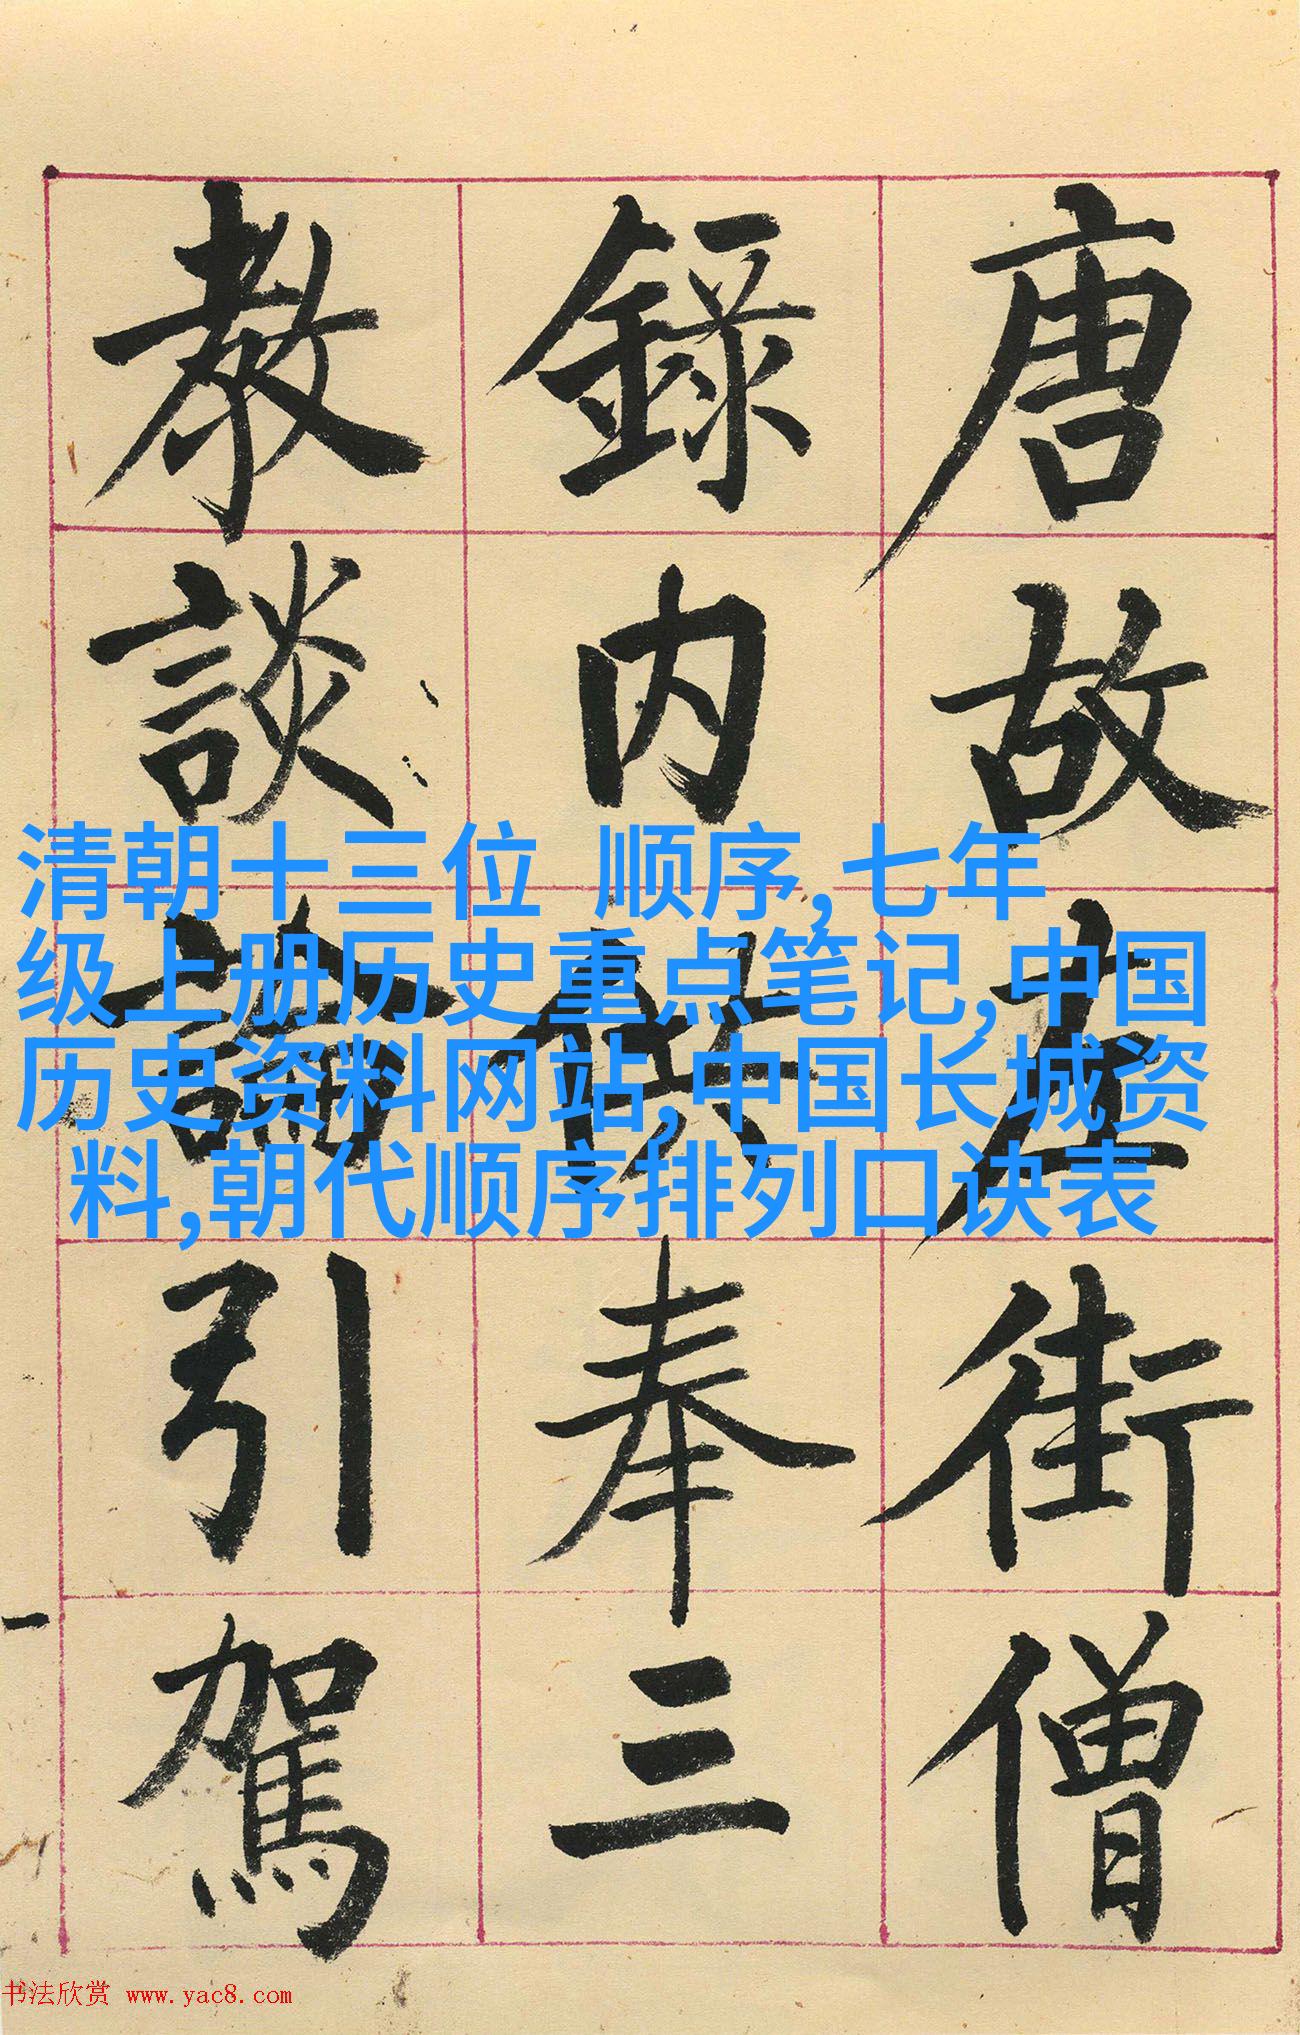 唐故左街僧
錄内供奉三
教談論引駕
清朝十三位 顺序,七年
级上册历史重点笔记,中国
历史资料网站,中国长城资
料,朝代顺序排列口诀表
书法欣赏 www.yac8.com